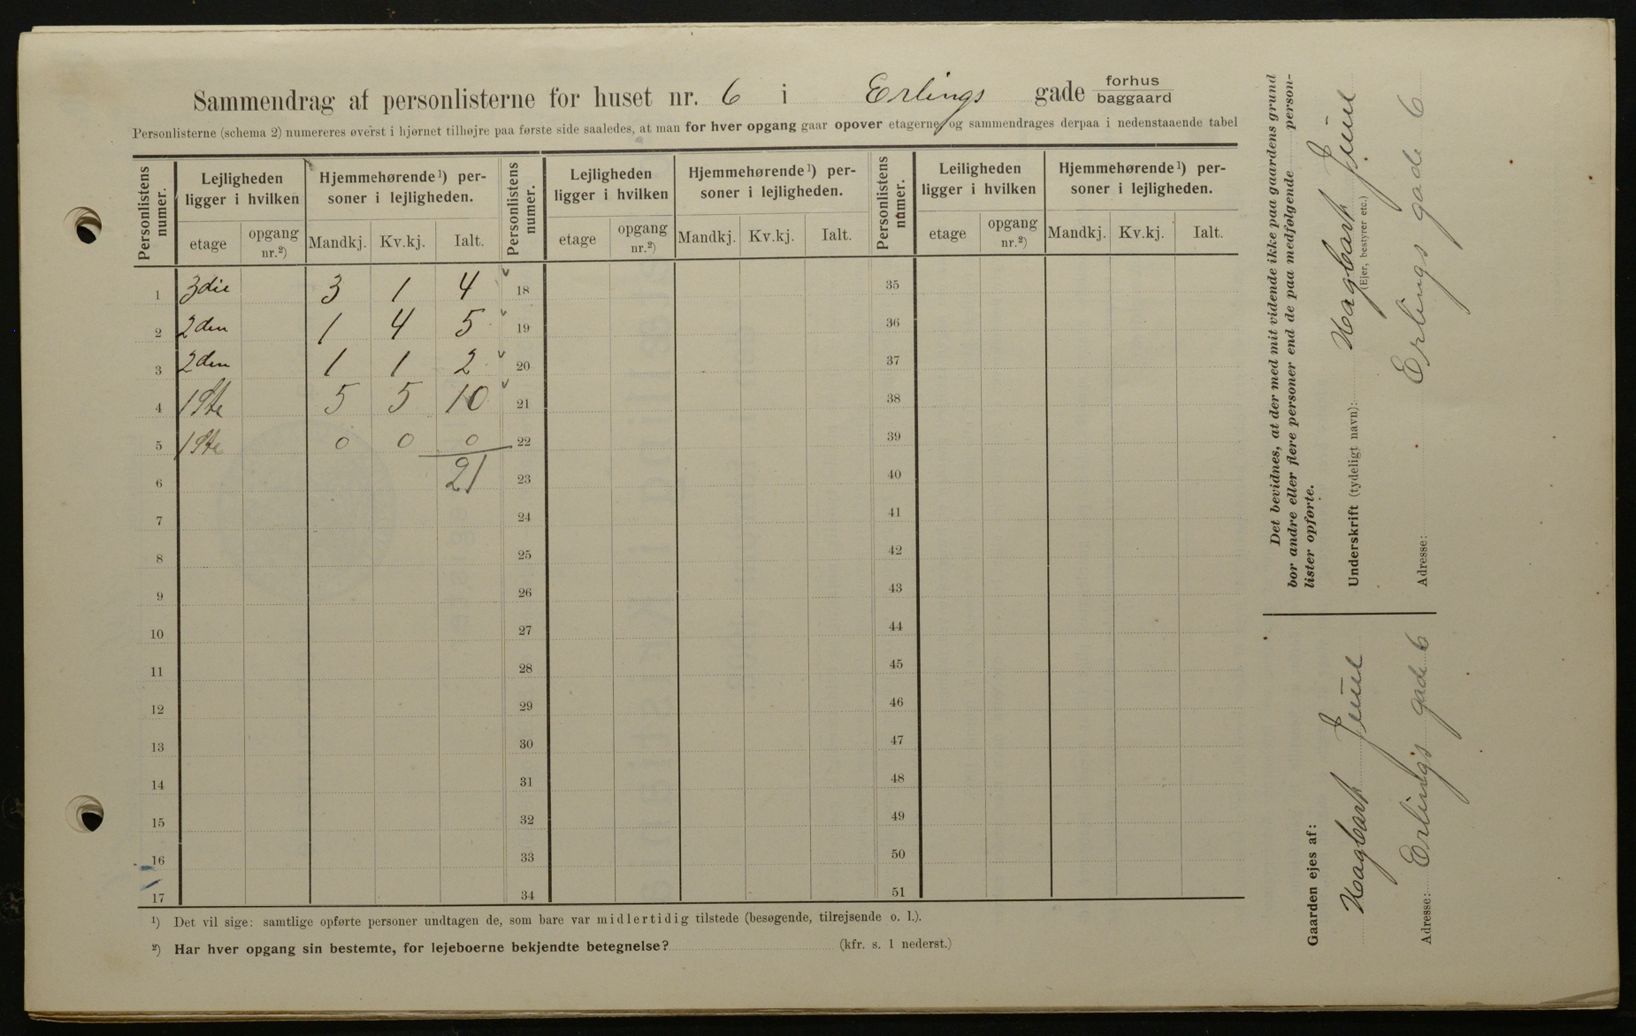 Sammendrag af personlisterne for huset nr. 6 i Erlings gade forhus baggaard
Personlisterne (schema 2) numereres øverst i hjørnet tilhøjre paa første side saaledes, at man for hver opgang gaar opover etagerne, og sammendrages derpaa i nedenstaaende tabel
Personlistens numer. Lejligheden ligger i hvilken Hjemmehørende¹) personer i lejligheden. Personlistens numer. Lejligheden ligger i hvilken Hjemmehørende¹) personer i lejligheden. Personlistens numer. Leiligheden ligger i hvilken Hjemmehørende¹) personer i lejligheden.
etage opgang nr.²) Mandkj. Kv.kj. Ialt. etage opgang nr.²) Mandkj. Kv.kj. Ialt. etage opgang nr.²) Mandkj. Kv.kj. Ialt.
1 3die 3 1 4 v 18 35
2 2den 1 4 5 v 19 36
3 2den 1 1 2 v 20 37
4 1ste 5 5 10 v 21 38
5 1ste 0 0 0 22 39
6 21 23 40
7 24 41
8 25 42
9 26 43
10 27 44
11 28 45
12 29 46
13 30 47
14 31 48
15 32 49
16 33 50
17 34 51
¹) Det vil sige: samtlige opførte personer undtagen de, som bare var midlertidig tilstede (besøgende, tilrejsende o. l.).
²) Har hver opgang sin bestemte, for lejeboerne bekjendte betegnelse? (kfr. s. 1 nederst.)
Det bevidnes, at der med mit vidende ikke paa gaardens grund
bor andre eller flere personer end de paa medfølgende personlister opførte.
Underskrift (tydeligt navn): Hagbart Juul
(Ejer, bestyrer etc.)
Adresse: Erlings gade 6
Gaarden ejes af:
Hagbart Juul
Adresse: Erlings gade 6